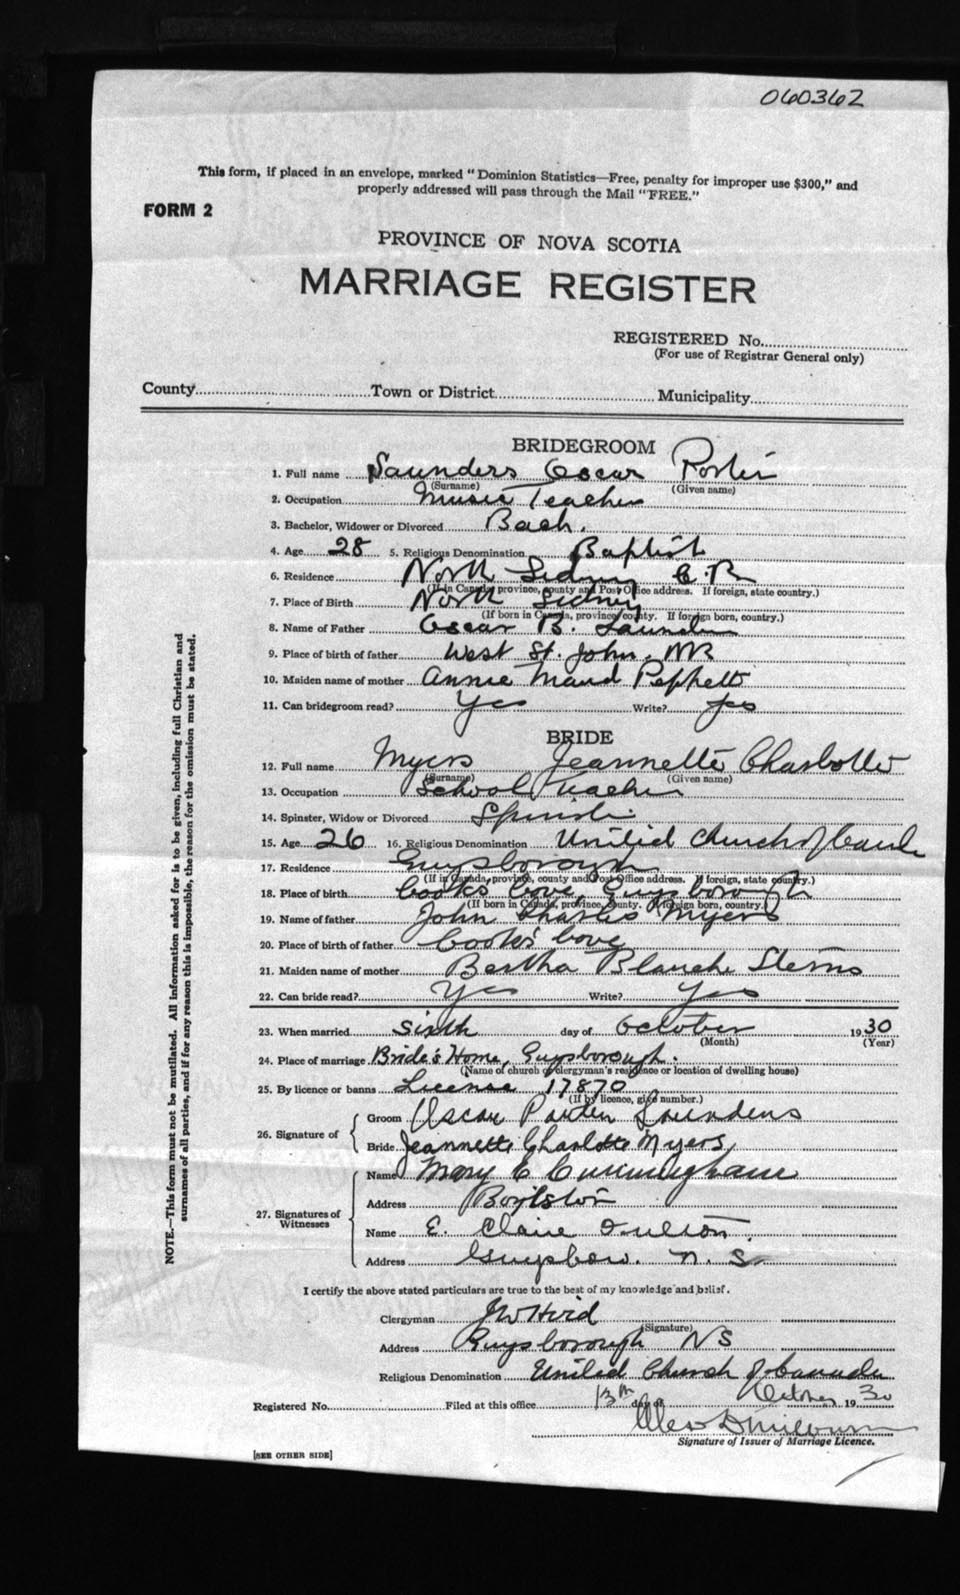 060362
This form, if placed in an envelope, marked "Dominion Statistics—Free, penalty for improper use $300," and
properly addressed will pass through the Mail "FREE."
FORM 2
PROVINCE OF NOVA SCOTIA
MARRIAGE REGISTER
REGISTERED No.
(For use of Registrar General only)
County Town or District Municipality
BRIDEGROOM
1. Full name Saunders Oscar
(Surname) (Given name)
2. Occupation Music Teacher
3. Bachelor, Widower or Divorced Bach.
4. Age 28 5. Religious Denomination Baptist
6. Residence North Sidney C.B.
(If in Canada, province, county and Post Office address. If foreign, state country.)
7. Place of Birth North Sidney
(If born in Canada, province, county. If foreign born, country.)
8. Name of Father Oscar B. Saunders
9. Place of birth of father West St. John, NB
10. Maiden name of mother Annie Maud
11. Can bridegroom read? Yes Write? Yes
BRIDE
12. Full name Myers Jeannette Charlotte
(Surname) (Given name)
13. Occupation School Teacher
14. Spinster, Widow or Divorced Spinster
15. Age 26 16. Religious Denomination United Church of Canada
17. Residence Guysborough
(If in Canada, province, county and Post Office address. If foreign, state country.)
18. Place of birth Cooks Cove, Guysborough
(If born in Canada, province, county. If foreign born, country.)
19. Name of father John Charles Myers
20. Place of birth of father Cooks' Cove
21. Maiden name of mother Bertha Blanche Sterns
22. Can bride read? Yes Write? Yes
23. When married sixth day of October 1930
(Month) (Year)
24. Place of marriage Bride's Home, Guysborough.
(Name of church or clergyman's residence or location of dwelling house)
25. By licence or banns License 17870
(If by licence, give number.)
26. Signature of
Groom Oscar Saunders
Bride Jeannette Charlotte Myers
27. Signatures of Witnesses
Name Mary E Cunningham
Address Boylston
Name E. Claire
Address Guysboro. N. S.
I certify the above stated particulars are true to the best of my knowledge and belief.
Clergyman
(Signature)
Address Guysborough NS
Religious Denomination United Church of Canada
Registered No. Filed at this office 13th day of October 1930
Signature of Issuer of Marriage Licence.
[SEE OTHER SIDE]
NOTE.—This form must not be mutilated. All information asked for is to be given, including full Christian and
surnames of all parties, and if for any reason this is impossible, the reason for the omission must be stated.